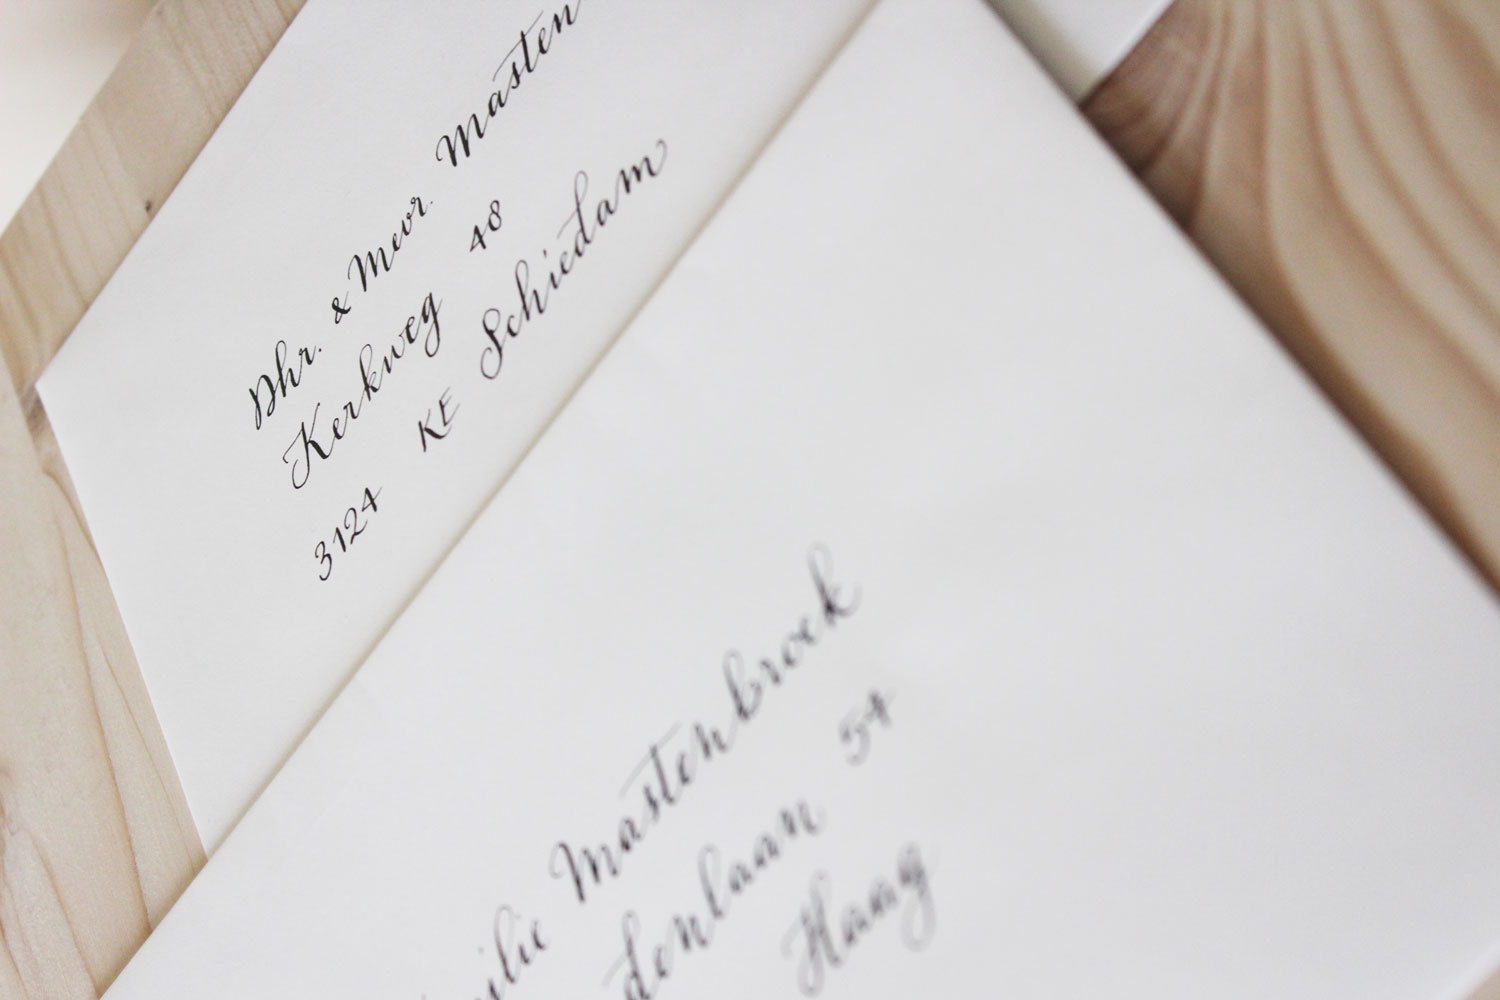 Dhr. & Mevr. Masten
Kerkweg 48
3124 KE Schiedam
ilie Mastenbroek
denlaan 54
Haag